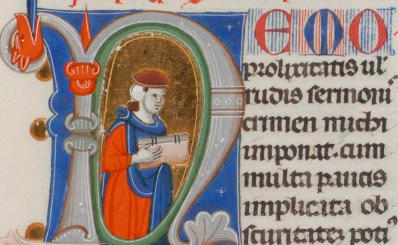 NEMO
prolixitatis ul'
rudis sermoni
crimen michi
imponat. cum
multa paucis
implicata ob